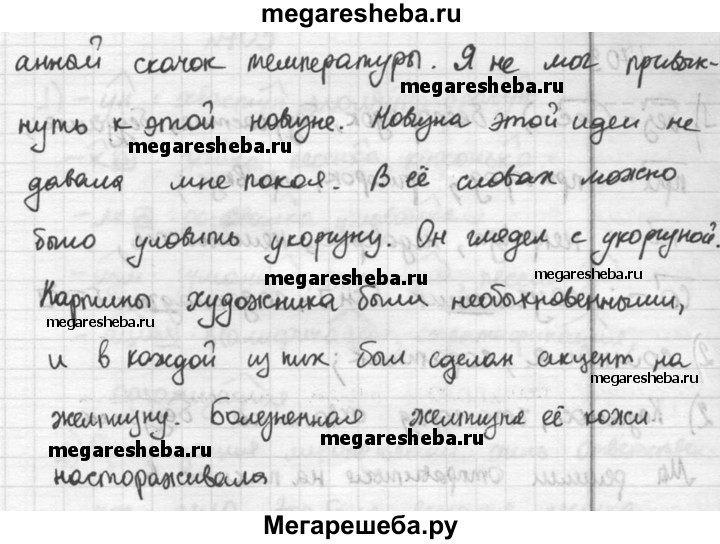 megaresheba.ru
анный скачок температуры. Я не мог привык-
megaresheba.ru
нуть к этой новизне. Новизна этой идеи не
megaresheba.ru
давала мне покоя. В её словах можно
было уловить укоризну. Он глядел с укоризной.
megaresheba.ru megaresheba.ru
Картины художника были необыкновенными,
megaresheba.ru
и в каждой из них был сделан акцент на
megaresheba.ru
желтизну. Болезненная желтизна её кожи
megaresheba.ru megaresheba.ru
настораживала
Мегарешеба.ру